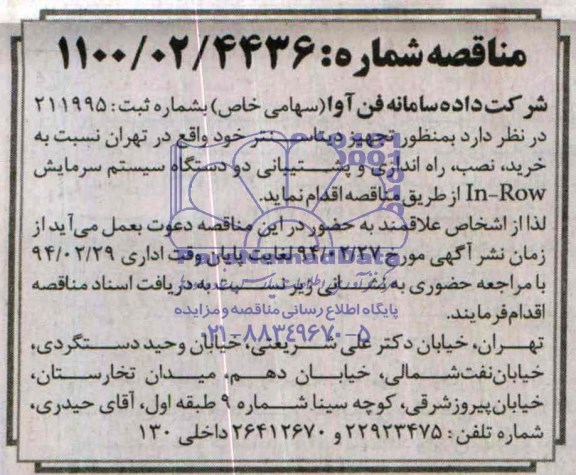 مناقصه شماره: ۱۱۰۰/۰۲/۴۴۳۶
شرکت داده سامانه فن آوا (سهامی خاص) بشماره ثبت: ۲۱۱۹۹۵
در نظر دارد بمنظور تجهیز دیتاسنتر خود واقع در تهران نسبت به
خرید، نصب، راه اندازی و پشتیبانی دو دستگاه سیستم سرمایش
In-Row از طریق مناقصه اقدام نماید.
لذا از اشخاص علاقمند به حضور در این مناقصه دعوت بعمل می‌آید از
زمان نشر آگهی مورخ ۹۴/۰۲/۲۷ لغایت پایان وقت اداری ۹۴/۰۲/۲۹
با مراجعه حضوری به نشانی زیر نسبت به دریافت اسناد مناقصه
اقدام فرمایند.
پایگاه اطلاع رسانی مناقصه و مزایده
۰۲۱-۸۸۳۴۹۶۷۰-۵
تهران، خیابان دکتر علی شریعتی، خیابان وحید دستگردی،
خیابان نفت شمالی، خیابان دهم، میدان تخارستان،
خیابان پیروز شرقی، کوچه سینا شماره ۹ طبقه اول، آقای حیدری،
شماره تلفن: ۲۲۹۲۳۴۷۵ و ۲۶۴۱۲۶۷۰ داخلی ۱۳۰